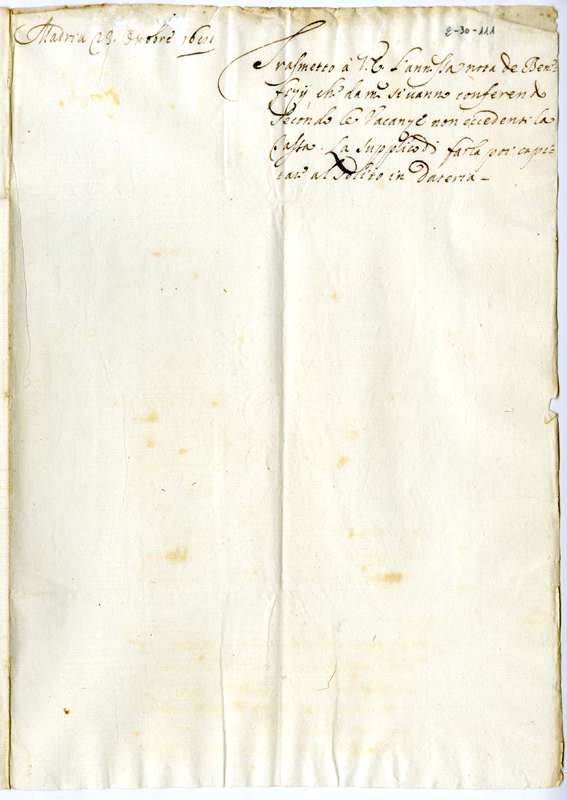 2-30-111
Madrid 29. Ottobre
Trasmetto à V.E. l'annessa nota de Ben=
eficij che da me si vanno conferendo
secondo le Vacanze non eccedenti la
Tassa. La supplico di farla poi capi=
tare al solito in Dateria_